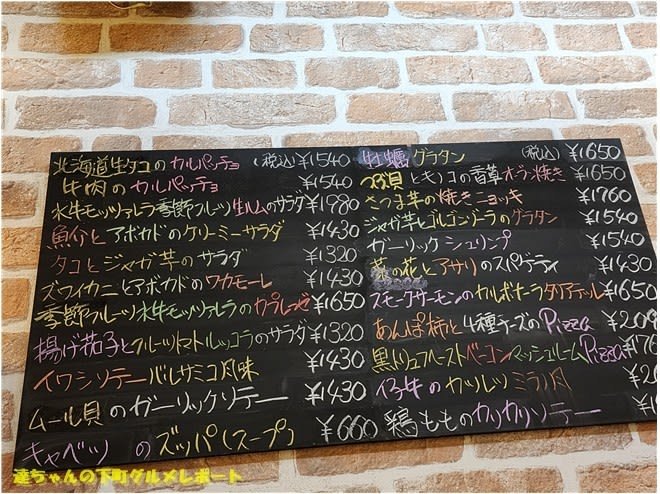 北海道生タコのカルパッチョ (税込)¥1540
牛肉のカルパッチョ ¥1540
水牛モッツァレラ季節フルーツ生ハムのサラダ ¥1980
魚介とアボカドのクリーミーサラダ ¥1430
タコとジャガ芋のサラダ ¥1320
ズワイカニとアボカドのワカモーレ ¥1430
季節フルーツ水牛モッツァレラのカプレーゼ ¥1650
揚げ茄子とフルーツトマトルッコラのサラダ ¥1320
イワシソテーバルサミコ風味 ¥1430
ムール貝のガーリックソテー ¥1430
キャベツ のズッパ(スープ) ¥660
牡蠣グラタン (税込) ¥1650
つぶ貝とキノコの香草オーブン焼き ¥1650
さつま芋の焼きニョッキ ¥1760
ジャガ芋とゴルゴンゾーラのグラタン ¥1540
ガーリックシュリンプ ¥1540
菜の花とアサリのスパゲティ ¥1430
スモークサーモンのカルボナーラタリアテッレ ¥1650
あんぽ柿と4種チーズのPizza ¥209
黒トリュフペーストベーコンマッシュルームPizza ¥176
仔牛のカツレツミラノ風
鶏もものカリカリソテー
達ちゃんの下町グルメレポート